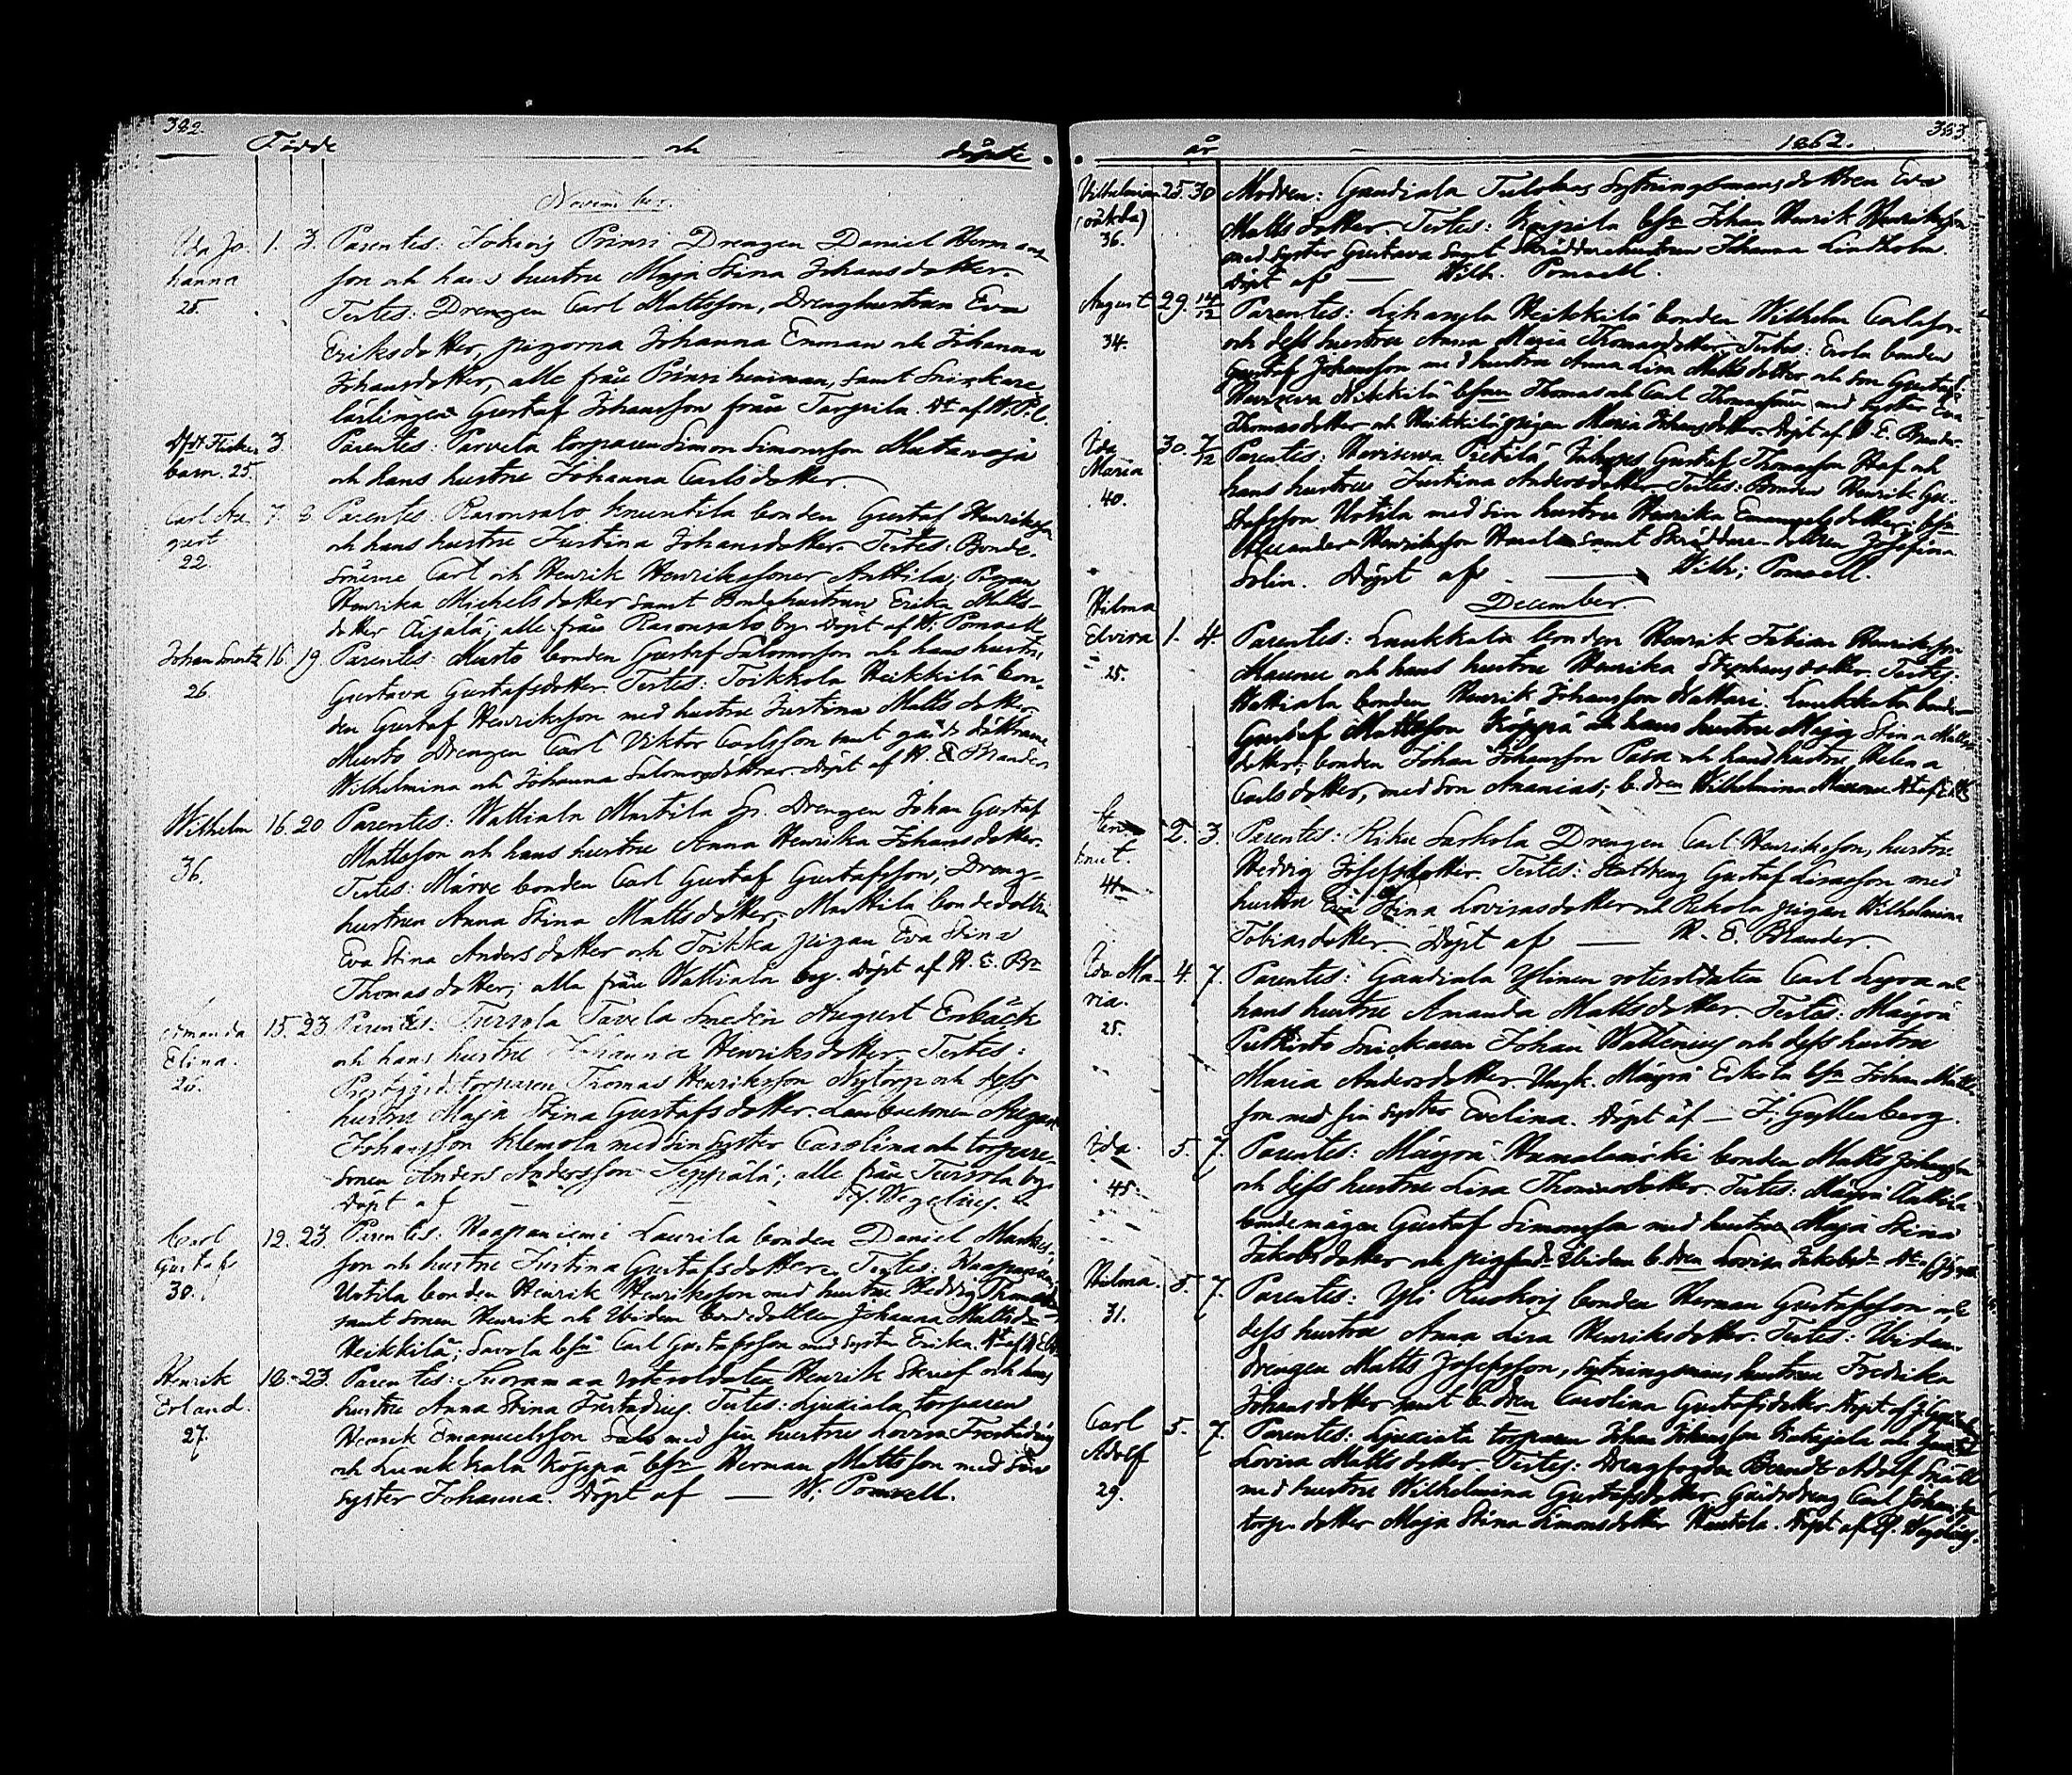 382.
Födde och döpte
November.
Ida Jo- 1. 3. Parentes: Prinsi Drengen Daniel Herman-
hanna son och hans hustru Maja Stina Johansdotter.
25. Testes: Drengen Carl Mattsson, Drenghustrun Eva
Eriksdotter, pigorna Johanna Enman och Johanna
Johansdotter, alle från Prinsi hemman, samt Snickare
lärlingen Gustaf Johansson från Torpila. Dt af W. P.
Flicke 3. Parentes: Parvela torparen Simon Simonsson
barn. 25. och hans hustru Johanna Carlsdotter.
Carl Au- 7. 8. Parentes: Rasonsalo bonden Gustaf Henriksson
gust och hans hustru Justina Johansdotter. Testes: Bonde-
22. sönerne Carl och Henrik Henrikssöner Anttila; Pigan
Henrika Michelsdotter samt Bondehustrun Erika Matts-
dotter Äijälä; alle från by. Döpt af W. Pomoell.
Johan 16. 19. Parentes: Musto bonden Gustaf Salomonsson och hans hustru
26. Gustava Gustafsdotter. Testes: Toikkola Heikkilä bon-
den Gustaf Henriksson med hustru Justina Mattsdotter.
Musto Drengen Carl Viktor Carlsson samt
Wilhelmina och Johanna Salomonsdöttrar. Döpt af R. E. Brander
Wilhelm 16. 20 Parentes: Wattiala Mattila Drengen Johan Gustaf
36. Mattsson och hans hustru Anna Henrika Johansdotter.
Testes: bonden Carl Gustaf Gustafsson, Dreng-
hustrun Anna Stina Mattsdotter, Mattila bondedottren
Eva Stina Andersdotter och Toikka pigan Eva Stina
Thomasdotter; alla från Wattiala by. Döpt af R. E. Br
Amanda 15. 23. Parentes: Tursola Tavela Smeden August Enbäck
Elina. och hans hustru Johanna Henriksdotter. Testes:
Prestgårdstorparen Thomas Henriksson Nytorp och dess
hustru Maja Stina Gustafsdotter. August
Johansson Klemola med sin syster Carolina och torpare-
sonen Anders Andersson Seppälä; alle från Tursola by.
Döpt af — Wegelius.
Carl 12. 23. Parentes: Haapaniemi Laurila bonden Daniel
Gustaf son och hustru Justina Gustafsdotter. Testes: Haapaniemi
30. Uotila bonden Henrik Henriksson med hustru Hedvig
samt sonen Henrik och ibidem bondedottren Johanna Mattsd.
Heikkilä; Savola bsn Carl Gustafsson med syster Erika.
Henrik 18. 23. Parentes: Suoramaa rotesoldaten Henrik Skruf och hans
Erland. hustru Anna Stina. Testes: Ljuxiala torparen
27. Henrik Emanuelsson Salo med sin hustru Lovisa
och Lunkkala Köppä bsn Herman Mattsson med sin
syster Johanna. Döpt af — W. Pomoell.
år 1862. 383.
Wilhelmina 25. 30 Modren: Gaudiala Sytningsmansdottren Eva
(oäkta) Mattsdotter. Testes: Köppilä bsn Johan Henrik Henriksson
36. med syster Gustava samt Skräddarehustrun Johanna Lindholm.
Döpt af — Wilh. Pomoell.
August 29. 14/12 Parentes: Heikkilä bonden Wilhelm Carlsson
34. och dess hustru Anna Maria Thomasdotter. Testes: Erola bonden
Gustaf Johansson med hustru Anna Lisa Mattsdotter och son Gustaf;
Thomas och Carl Thomassöner med syster Eva
Thomasdotter och Heikkilä pigan Maria Johansdotter. Döpt af R. E. Brander.
Ida 30. 7/12 Parentes: Gustaf Thomasson Staf och
Maria hans hustru Justina Andersdotter. Testes: Bonden Henrik Gu-
40. stafsson Uotila med sin hustru Henrika Emanuelsdotter, bsn
Alexander Henriksson samt Skräddare-dottren Josefina
Solin. Döpt af — Wilh. Pomoell.
December.
Hilma
Elvira 1. 4. Parentes: Lunkkala bonden Henrik Fabian Henriksson
25. och hans hustru Henrika Stephansdotter. Testes:
Wattiala bonden Henrik Johansson. Lunkkala bonden
Gustaf Mattsson Köppä och hans hustru Maja Stina Matts-
dotter; bonden Johan Johansson och hans hustru Helena
Carlsdotter, med son Ananias; b.dren Wilhelmina
Sten 2. 3. Parentes: Riku Sarkola Drengen Carl Henriksson, hustru
Knut. Hedvig Josefsdotter. Testes: Gustaf Isacsson med
41 hustru Eva Stina Lovisasdotter och Rekola pigan Wilhelmina
Tobiasdotter. Döpt af — R. E. Brander.
Ida Ma- 4. 7. Parentes: Gaudiala Ylinen rotesoldaten Carl och
ria. hans hustru Amanda Mattsdotter. Testes: Mäyrä
25. Snickaren Johan Wallenius och dess hustru
Maria Andersdotter. Ungk. Mäyrä Eskola bsn Johan Matts-
son med sin syster Evelina. Döpt af — J. Gyllenberg.
Ida. 5. 7. Parentes: Mäyrä bonden Matts Johansson
45. och dess hustru Lisa Thomasdotter. Testes: Mäyrä Anttila
bondemågen Gustaf Simonsson med hustru Maja Stina
Jakobsdotter och ibidem b.dren Lovisa Jakobsd.
Hilma. 5. 7. Parentes: Yli bonden Herman Gustafsson och
31. dess hustru Anna Lisa Henriksdotter. Testes: Ibidem
drengen Matts Josefsson, sytningsmanshustrun Fredrika
Johansdotter samt b.dren Carolina Gustafsdotter. Döpt af
Carl 5. 7. Parentes: Ljuxiala torparen Johan Johansson och
Adolf Lovisa Mattsdotter. Testes: Drengfogden Berndt Adolf
29. med hustru Wilhelmina Gustafsdotter, Gårdsdreng Carl Johansson
torp. dotter Maja Stina Simonsdotter. Döpt af Wegelius.